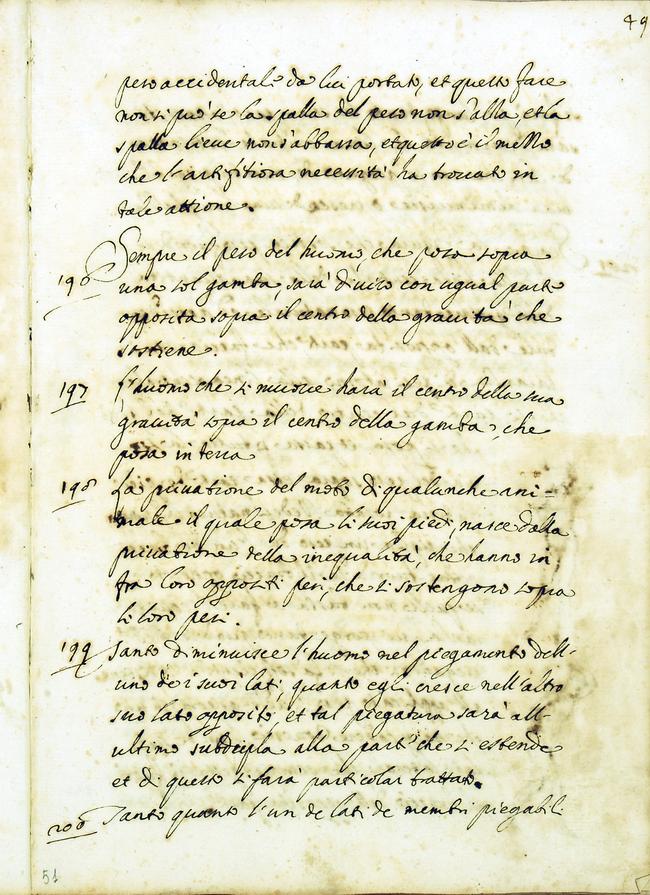 49
peso accidentale da lui portato, et questo fare
non si può se la spalla del peso non s'alza, et la
spalla lieue non s'abbassa, et questo è il mezzo
che l'artifitiosa necessità ha trouato in
tale attione.
196 Sempre il peso del huomo, che posa sopra
una sol gamba, sarà diuiso con ugual parte
opposita sopra il centro della grauità che
sostiene.
197 L'huomo che si muoue harà il centro della sua
grauità sopra il centro della gamba, che
posa in terra
198 La priuatione del moto di qualunche ani-
male il quale posa li suoi piedi, nasce dalla
priuatione della inequalità, che hanno in
fra loro oppositi pesi, che si sostengono sopra
li loro pesi.
199 Tanto diminuisce l'huomo nel piegamento dell'
uno de i suoi lati, quanto egli cresce nell'altro
suo lato opposito, et tal piegatura sarà all'
ultimo subdupla alla parte che si estende
et di questo si farà particolar trattato.
200 Tanto quanto l'un de lati de membri piegabili
51